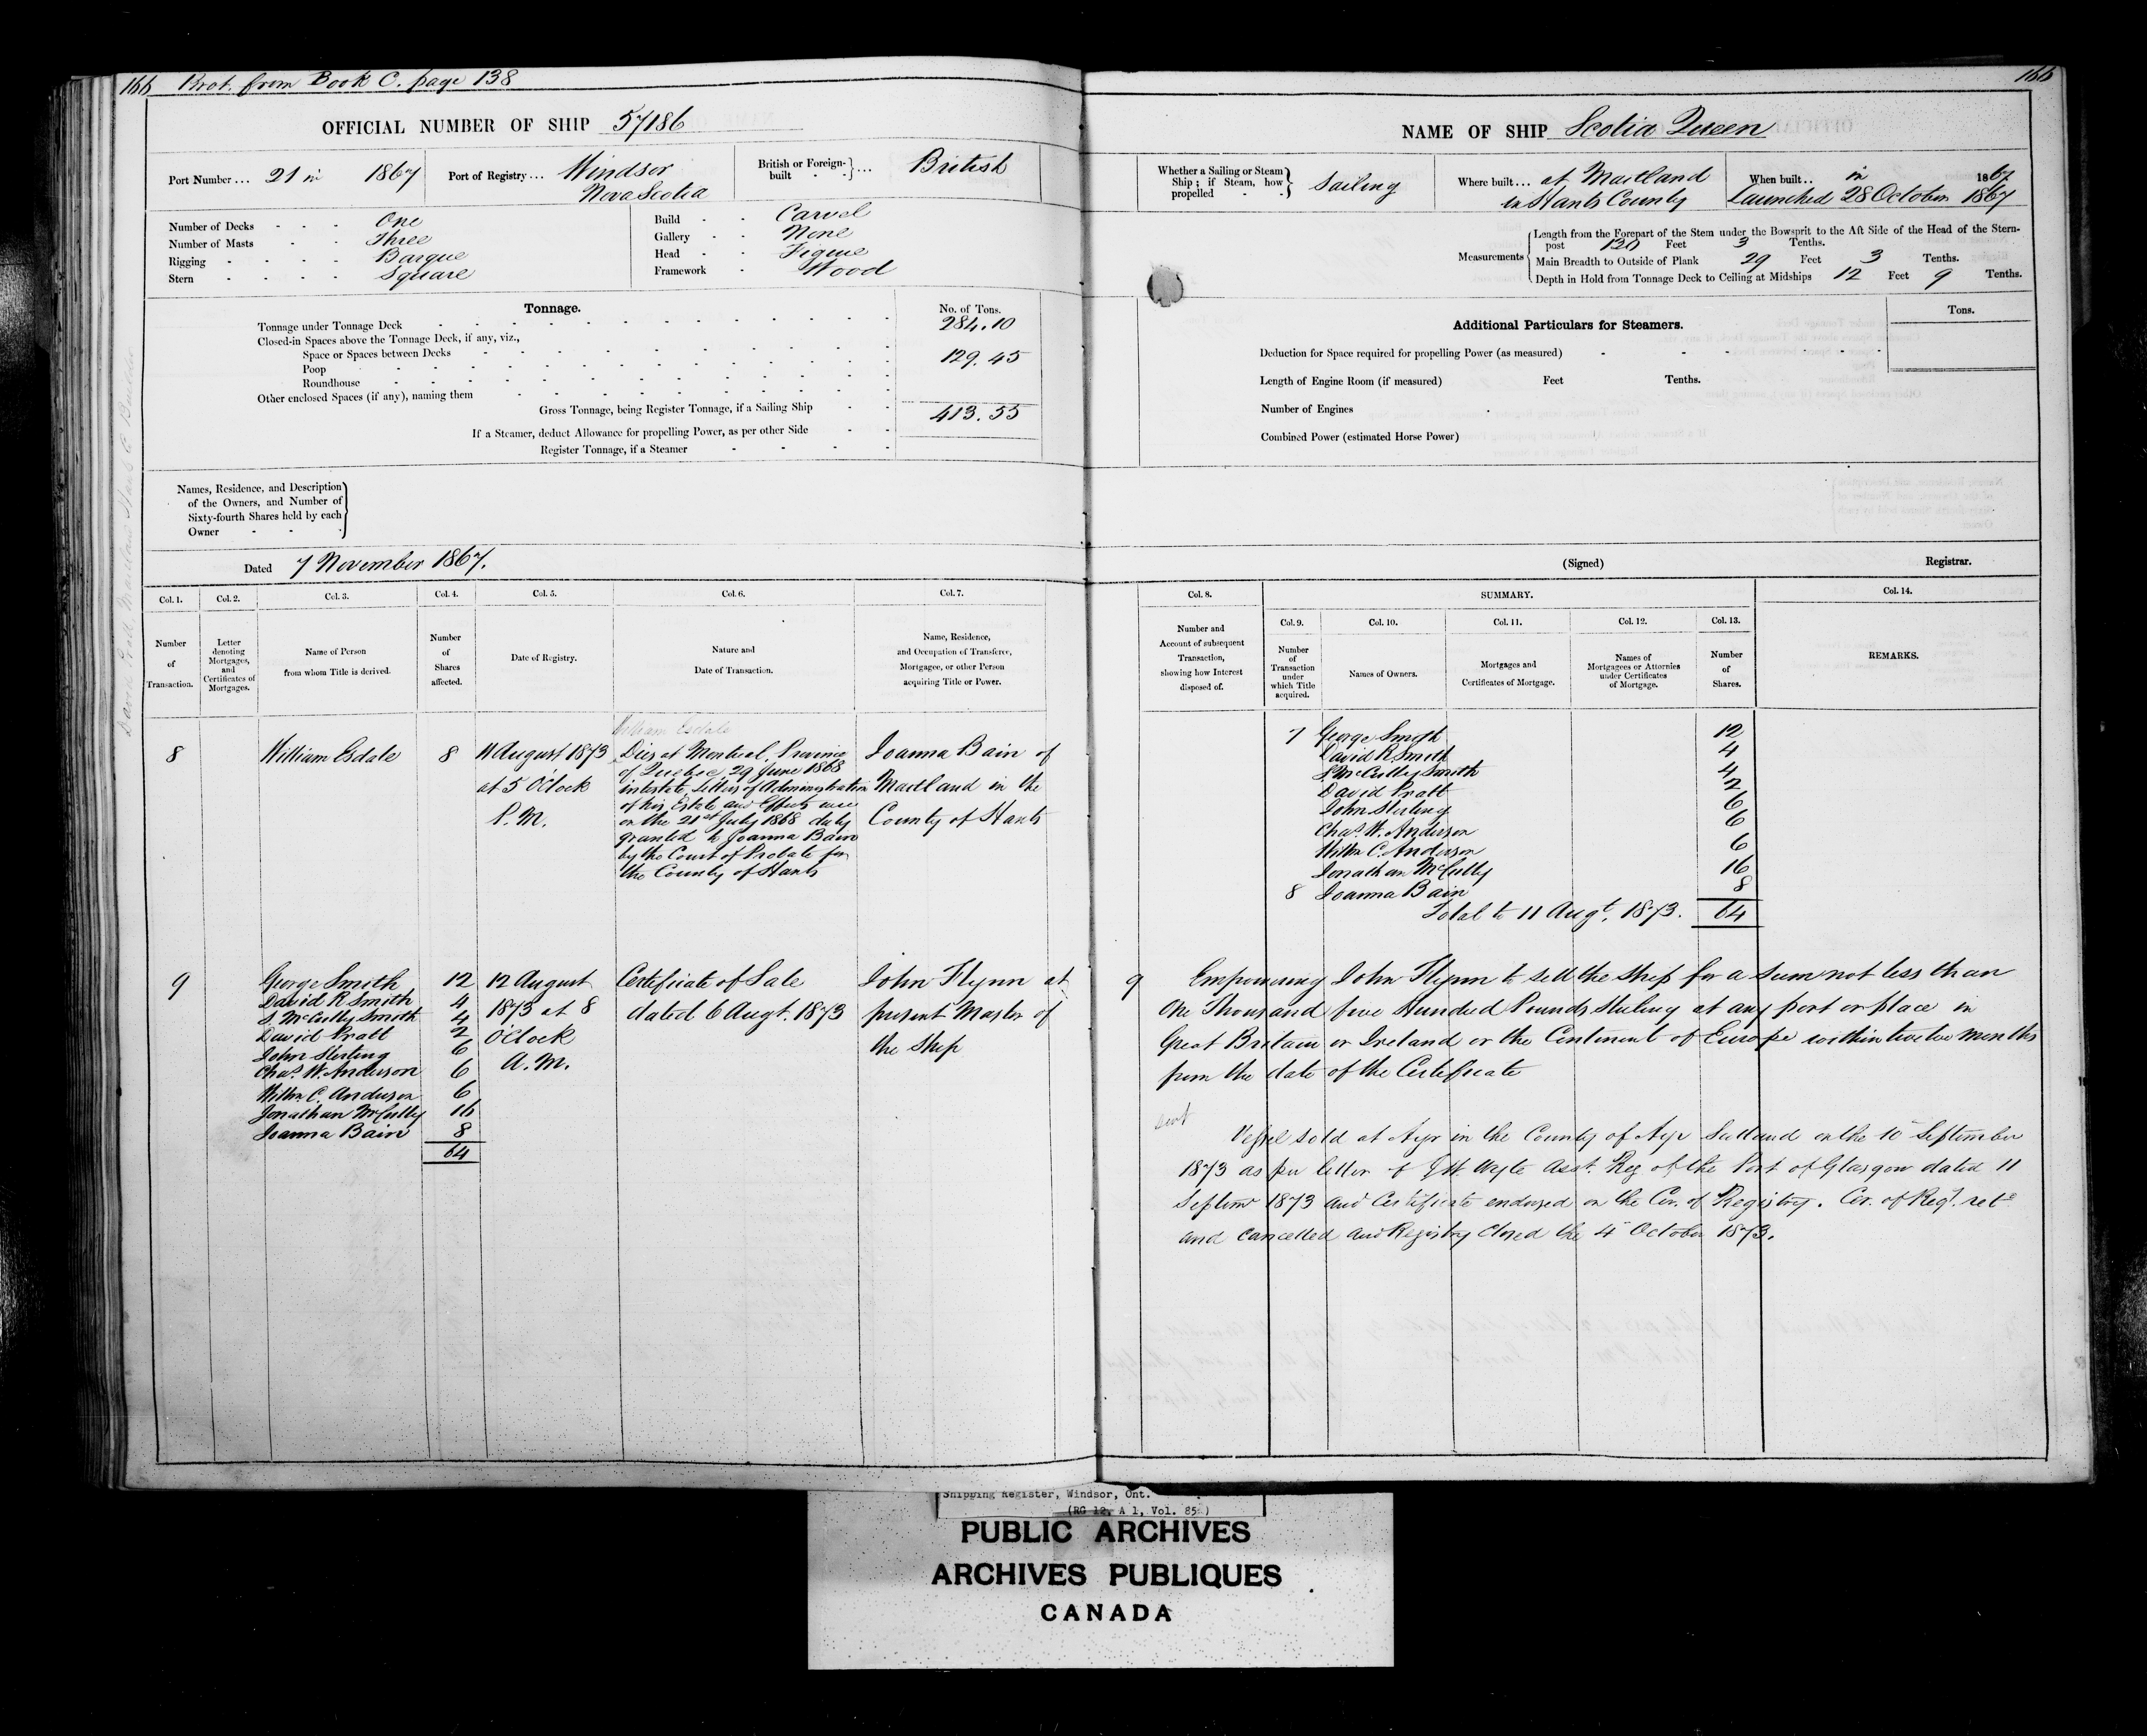 166 Brot. from Book C. page 138
OFFICIAL NUMBER OF SHIP 57186
Port Number ... 21 in 1867 Port of Registry ... Windsor Nova Scotia British or Foreign-built ... British
Number of Decks One
Number of Masts Three
Rigging Barque
Stern Square
Build Carvel
Gallery None
Head Figure
Framework Wood
Tonnage. No. of Tons.
Tonnage under Tonnage Deck 284.10
Closed-in Spaces above the Tonnage Deck, if any, viz.,
Space or Spaces between Decks 129.45
Poop
Roundhouse
Other enclosed Spaces (if any), naming them
Gross Tonnage, being Register Tonnage, if a Sailing Ship 413.55
If a Steamer, deduct Allowance for propelling Power, as per other Side
Register Tonnage, if a Steamer
Names, Residence, and Description
of the Owners, and Number of
Sixty-fourth Shares held by each
Owner
Dated 7 November 1867.
Col. 1. Col. 2. Col. 3. Col. 4. Col. 5. Col. 6. Col. 7.
Number of Transaction.
Letter denoting Mortgages, and Certificates of Mortgages.
Name of Person from whom Title is derived.
Number of Shares affected.
Date of Registry.
Nature and Date of Transaction.
Name, Residence, and Occupation of Transferee, Mortgagee, or other Person acquiring Title or Power.
William Esdale
8 William Esdale 8
11 August 1873
at 5 O'Clock
P.M.
Dies at Montreal, Province
of Quebec, 29 June 1868
intestate, Letters of Administration
of his Estate and Effects were
on the 21st July 1868 duly
granted to Joanna Bain
by the Court of Probate for
the County of Hants
Joanna Bain of
Maitland in the
County of Hants
9
George Smith 12
David R Smith 4
S. McCully Smith 4
David Pratt 2
John Sterling 6
Chas. W. Anderson 6
Willm. C. Anderson 6
Jonathan McCully 16
Joanna Bain 8
64
12 August
1873 at 8
O'Clock
A.M.
Certificate of Sale
dated 6 Augt. 1873
John Flynn at
present Master of
the Ship
166
NAME OF SHIP Scotia Queen
Whether a Sailing or Steam Ship; if Steam, how propelled Sailing
Where built ... at Maitland in Hants County
When built .. in 1867 Launched 28 October 1867
Measurements
Length from the Forepart of the Stem under the Bowsprit to the Aft Side of the Head of the Stern-
post 120 Feet 3 Tenths.
Main Breadth to Outside of Plank 29 Feet 3 Tenths.
Depth in Hold from Tonnage Deck to Ceiling at Midships 12 Feet 9 Tenths.
Additional Particulars for Steamers. Tons.
Deduction for Space required for propelling Power (as measured)
Length of Engine Room (if measured) Feet Tenths.
Number of Engines
Combined Power (estimated Horse Power)
(Signed) Registrar.
Col. 8. SUMMARY. Col. 14.
Col. 9. Col. 10. Col. 11. Col. 12. Col. 13.
Number and Account of subsequent Transaction, showing how Interest disposed of.
Number of Transaction under which Title acquired.
Names of Owners.
Mortgages and Certificates of Mortgage.
Names of Mortgagees or Attornies under Certificates of Mortgage.
Number of Shares.
REMARKS.
7 George Smith 12
David R Smith 4
S. McCully Smith 4
David Pratt 2
John Sterling 6
Chas. W. Anderson 6
Willm C. Anderson 6
Jonathan McCully 16
8 Joanna Bain 8
Total to 11 Augt. 1873. 64
9 Empowering John Flynn to sell the Ship for a Sum not less than
One Thousand five Hundred Pounds Sterling at any port or place in
Great Britain or Ireland or the Continent of Europe within twelve months
from the date of the Certificate
Vessel sold at Ayr in the County of Ayr Scotland on the 10 September
1873 as per letter of J. H. Wyle Asst. Reg of the Port of Glasgow dated 11
Septemr 1873 and Certificate endorsed on the Cer. of Registry. Cer. of Regt. retd
and cancelled and Registry Closed the 4 October 1873.
Shipping Register, Windsor, Ont.
(RG 12, A 1, Vol. 85)
PUBLIC ARCHIVES
ARCHIVES PUBLIQUES
CANADA